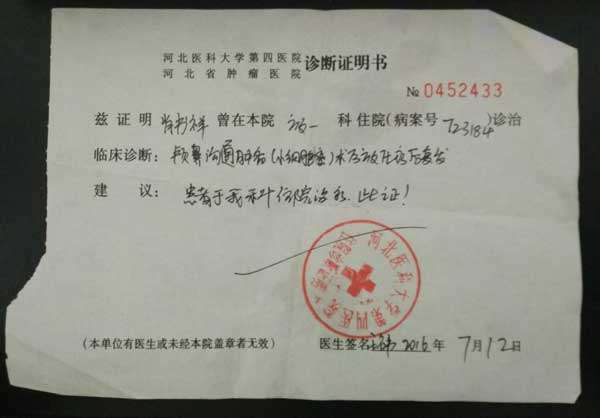 河北医科大学第四医院
河北省肿瘤医院
诊断证明书
№ 0452433
兹证明 肖 祥 曾在本院 放一 科住院(病案号 723184)诊治
临床诊断: 鼻 肿瘤(小细胞癌)术后放化疗后复发
建议: 患者于我科住院治疗.此证!
河北医科大学第四医院
(本单位有医生或未经本院盖章者无效)
医生签名 2016年 7月12日